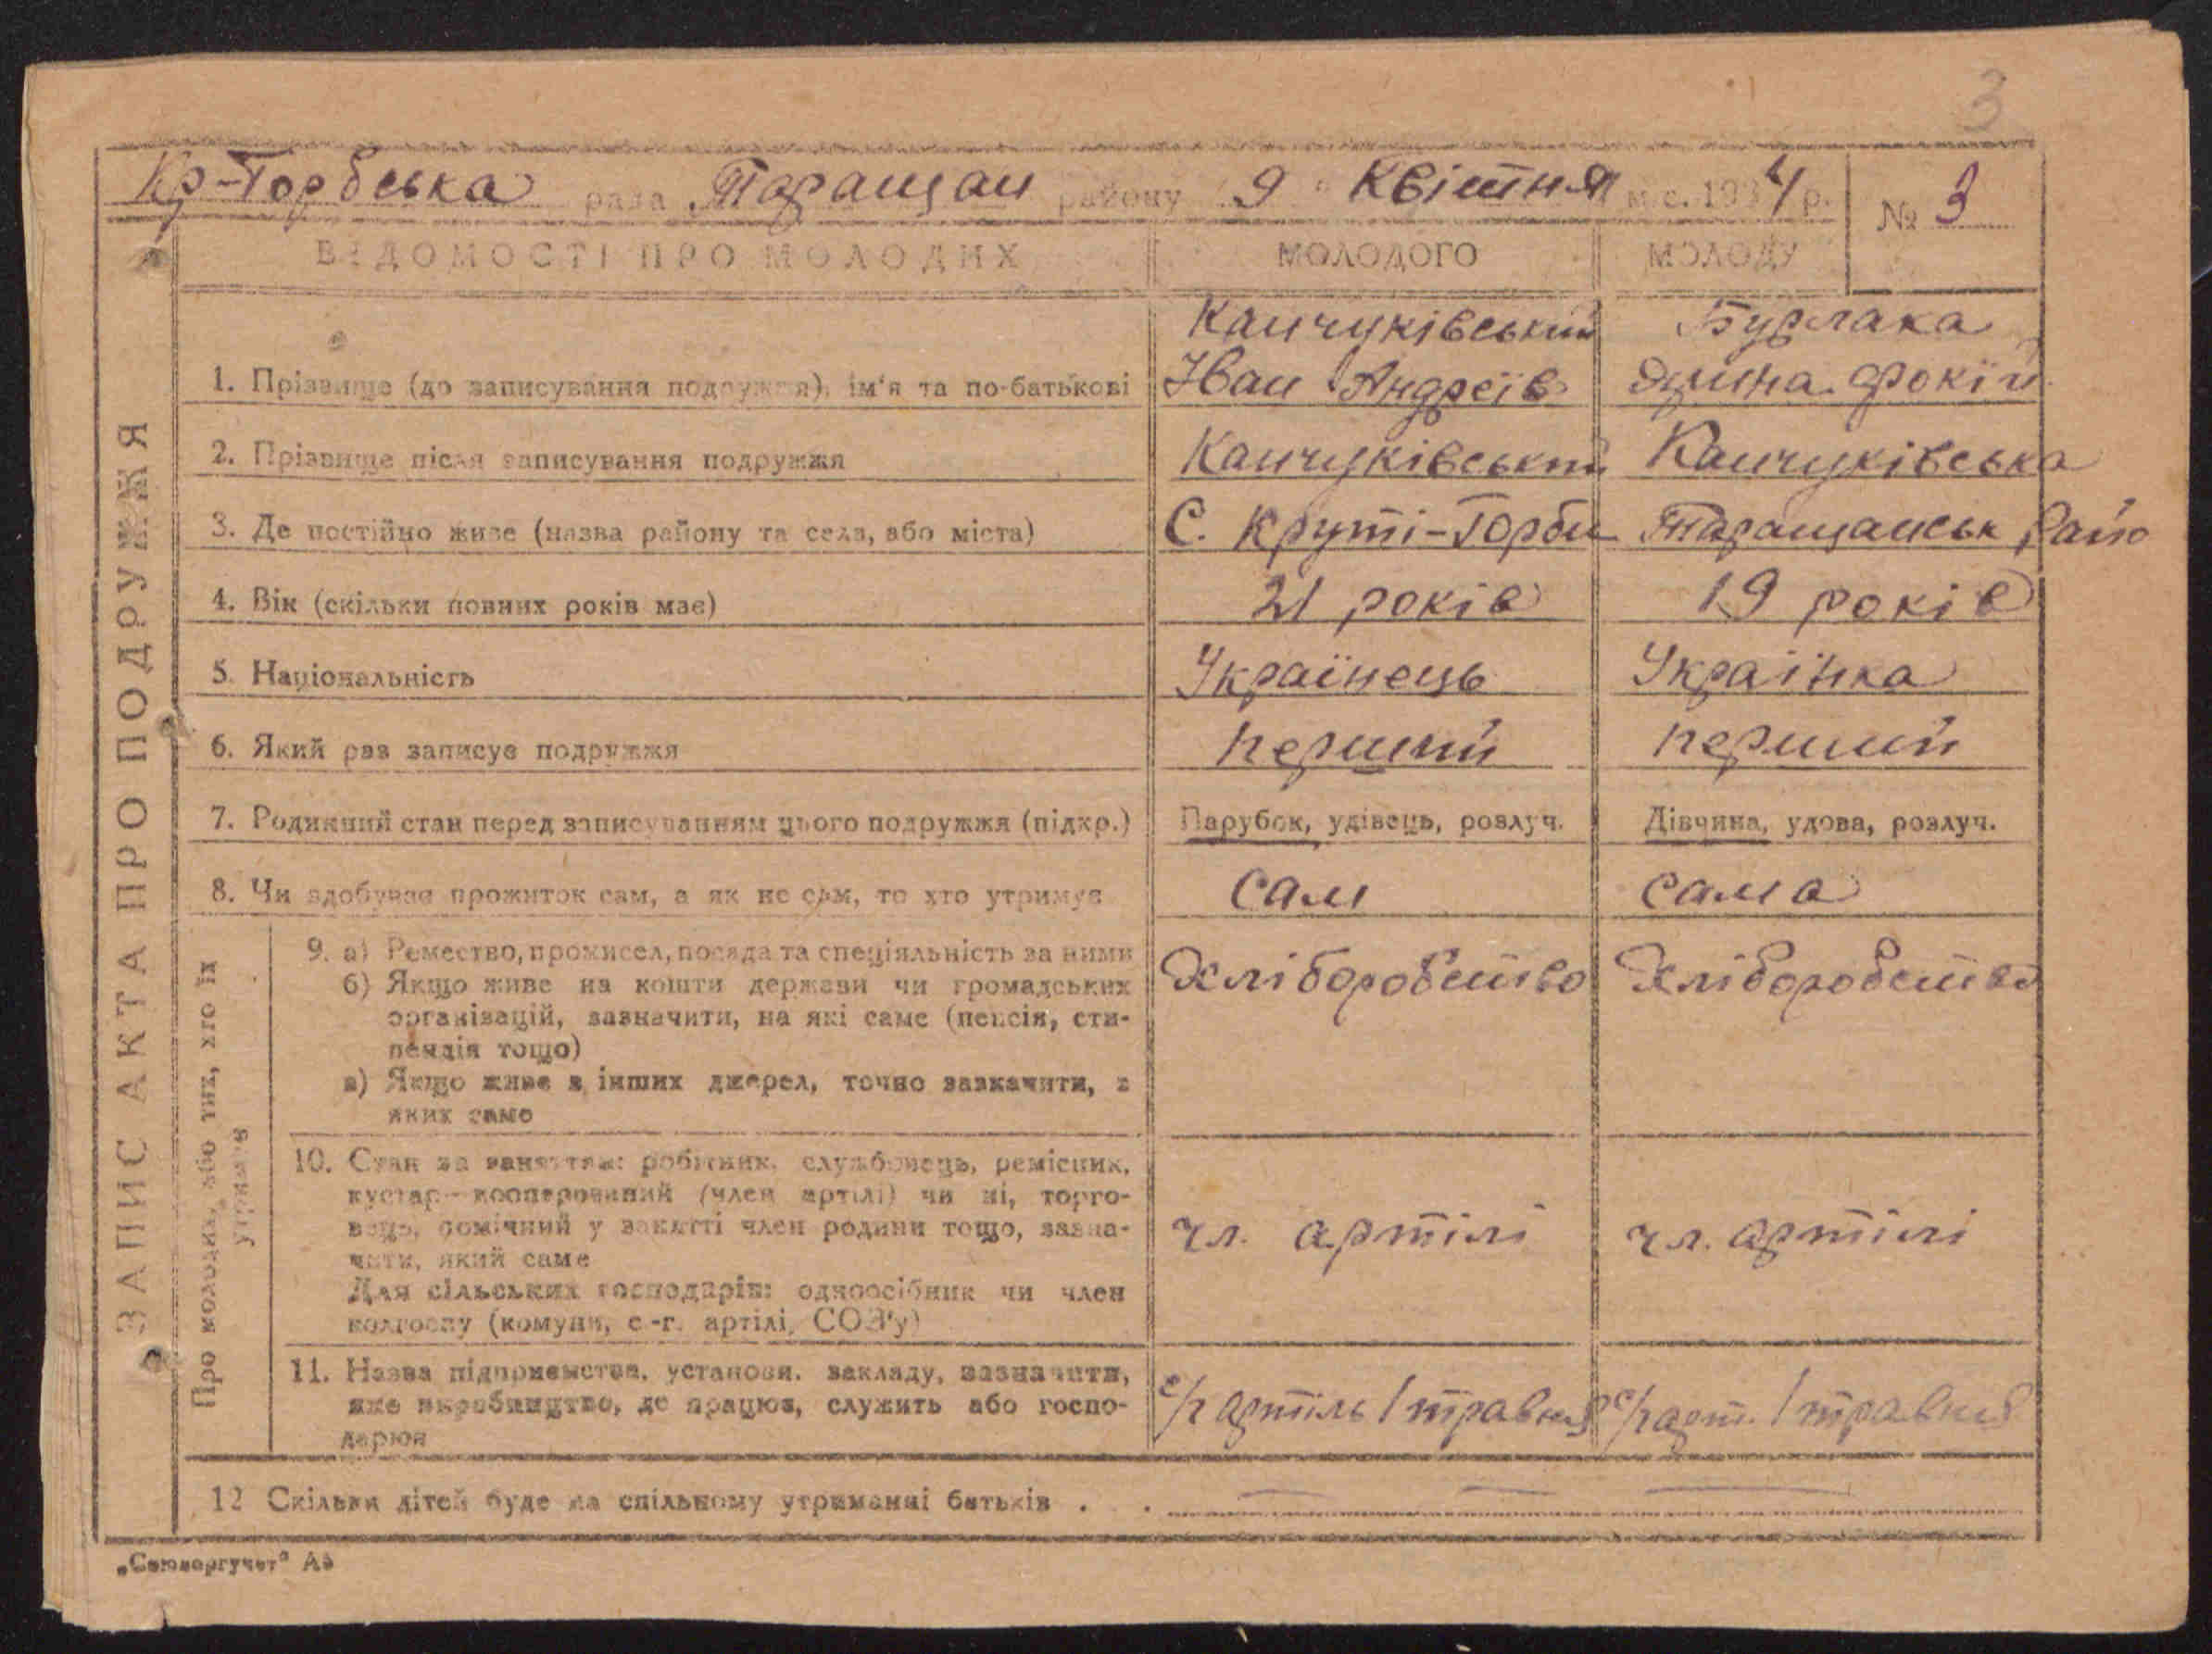 3
Кр-Торбська рада Таращан району 9 " Квітня м-с. 1934 р. № 3
ВІДОМОСТІ ПРО МОЛОДИХ МОЛОДОГО МОЛОДУ
Канчуківський Бурлака
1. Прізвище (до записування подружжя), ім'я та по-батькові Іван Андреїв Фокіи
2. Прізвище після записування подружжя Канчуківський Канчуківська
3. Де постійно живе (назва району та села, або міста) С. Круті-Горби Таращанськ Райо
4. Вік (скільки повних років має) 21 років 19 років
5. Національність Українець Українка
6. Який раз записує подружжя перший перший
7. Родинний стан перед записуванням цього подружжя (підкр.) Парубок, удівець, розлуч. Дівчина, удова, розлуч.
8. Чи здобуває прожиток сам, а як не сам, то хто утримує сам сама
9. а) Ремество, промисел, посада та спеціяльність за ними Хліборобство Хліборобство
б) Якщо живе на кошти держави чи громадських
організацій, зазначити, на які саме (пенсія, сти-
пендія тощо)
в) Якщо живе з інших джерел, точно зазначити, з
яких саме
10. Стан за заняттям: робітник, службовець, ремісник,
кустар—кооперований (член артілі) чи ні, торго-
вець, помічний у занятті член родини тощо, зазна-
чити, який саме чл. артілі чл. артілі
Для сільських господарів: одноосібник чи член
колгоспу (комуни, с.-г. артілі, СОЗ'у)
11. Назва підприємства, установи, закладу, зазначити,
яке виробництво, де працює, служить або госпо-
дарює с/г артіль 1 травня с/г арт. 1 травня
12 Скільки дітей буде на спільному утриманні батьків . .
ЗАПИС АКТА ПРО ПОДРУЖЖЯ
Про молодих, або тих, хто їх
утримує
„Союзоргучет"